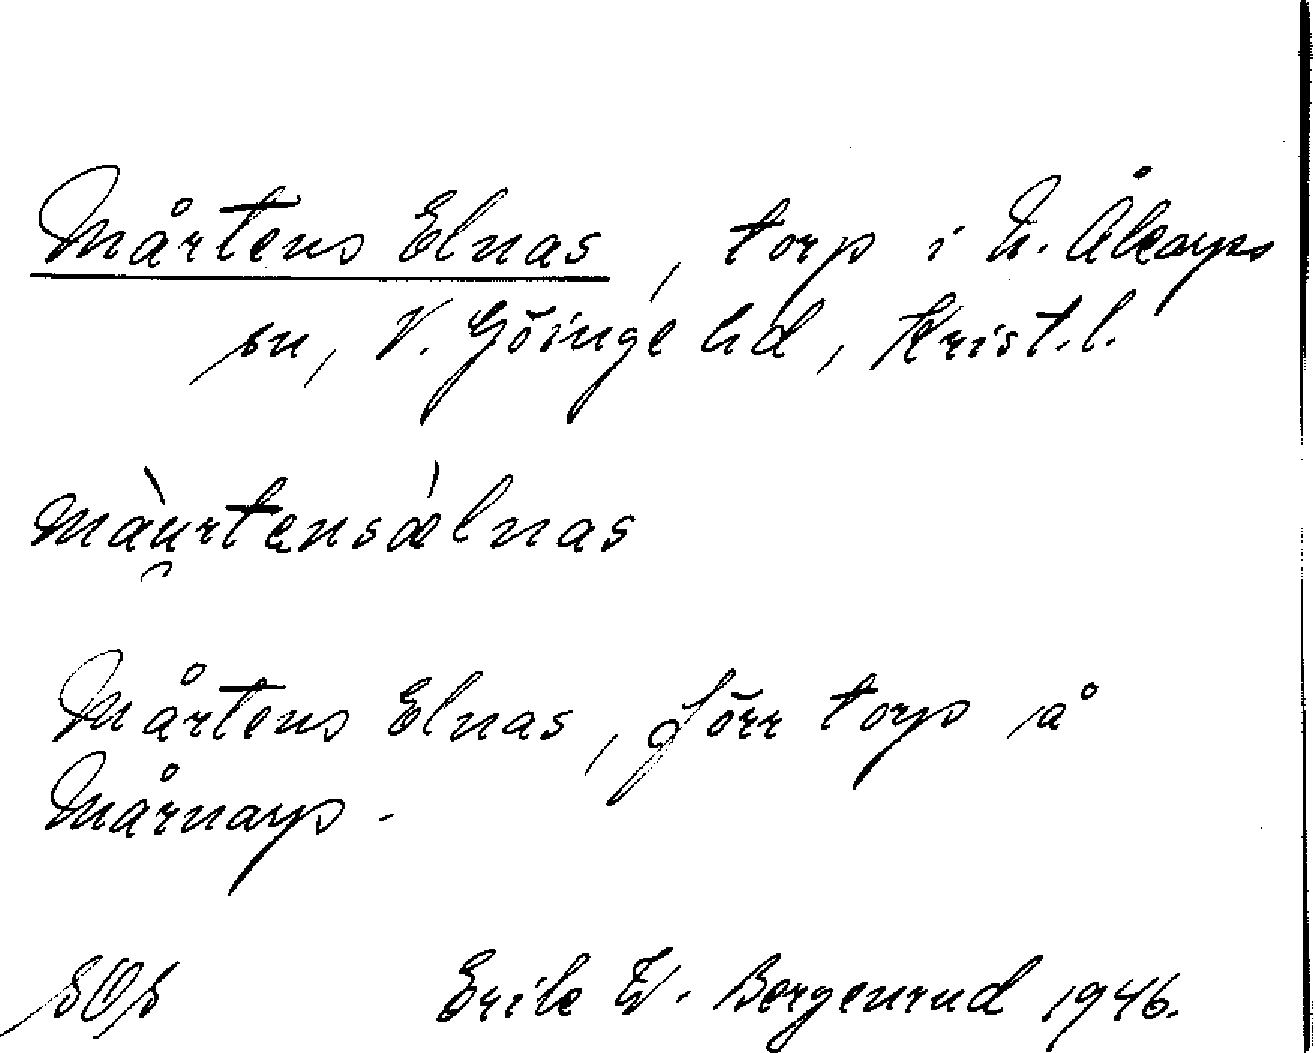 Mårtens Elnas, torp i N. Åkarps
sn, V. Göinge hd, Krist. l.
màu̯rtensǽlnas
Mårtens Elnas, förr torp på
Mårnarp.
SOS Erik W. Bergenrud 1946.